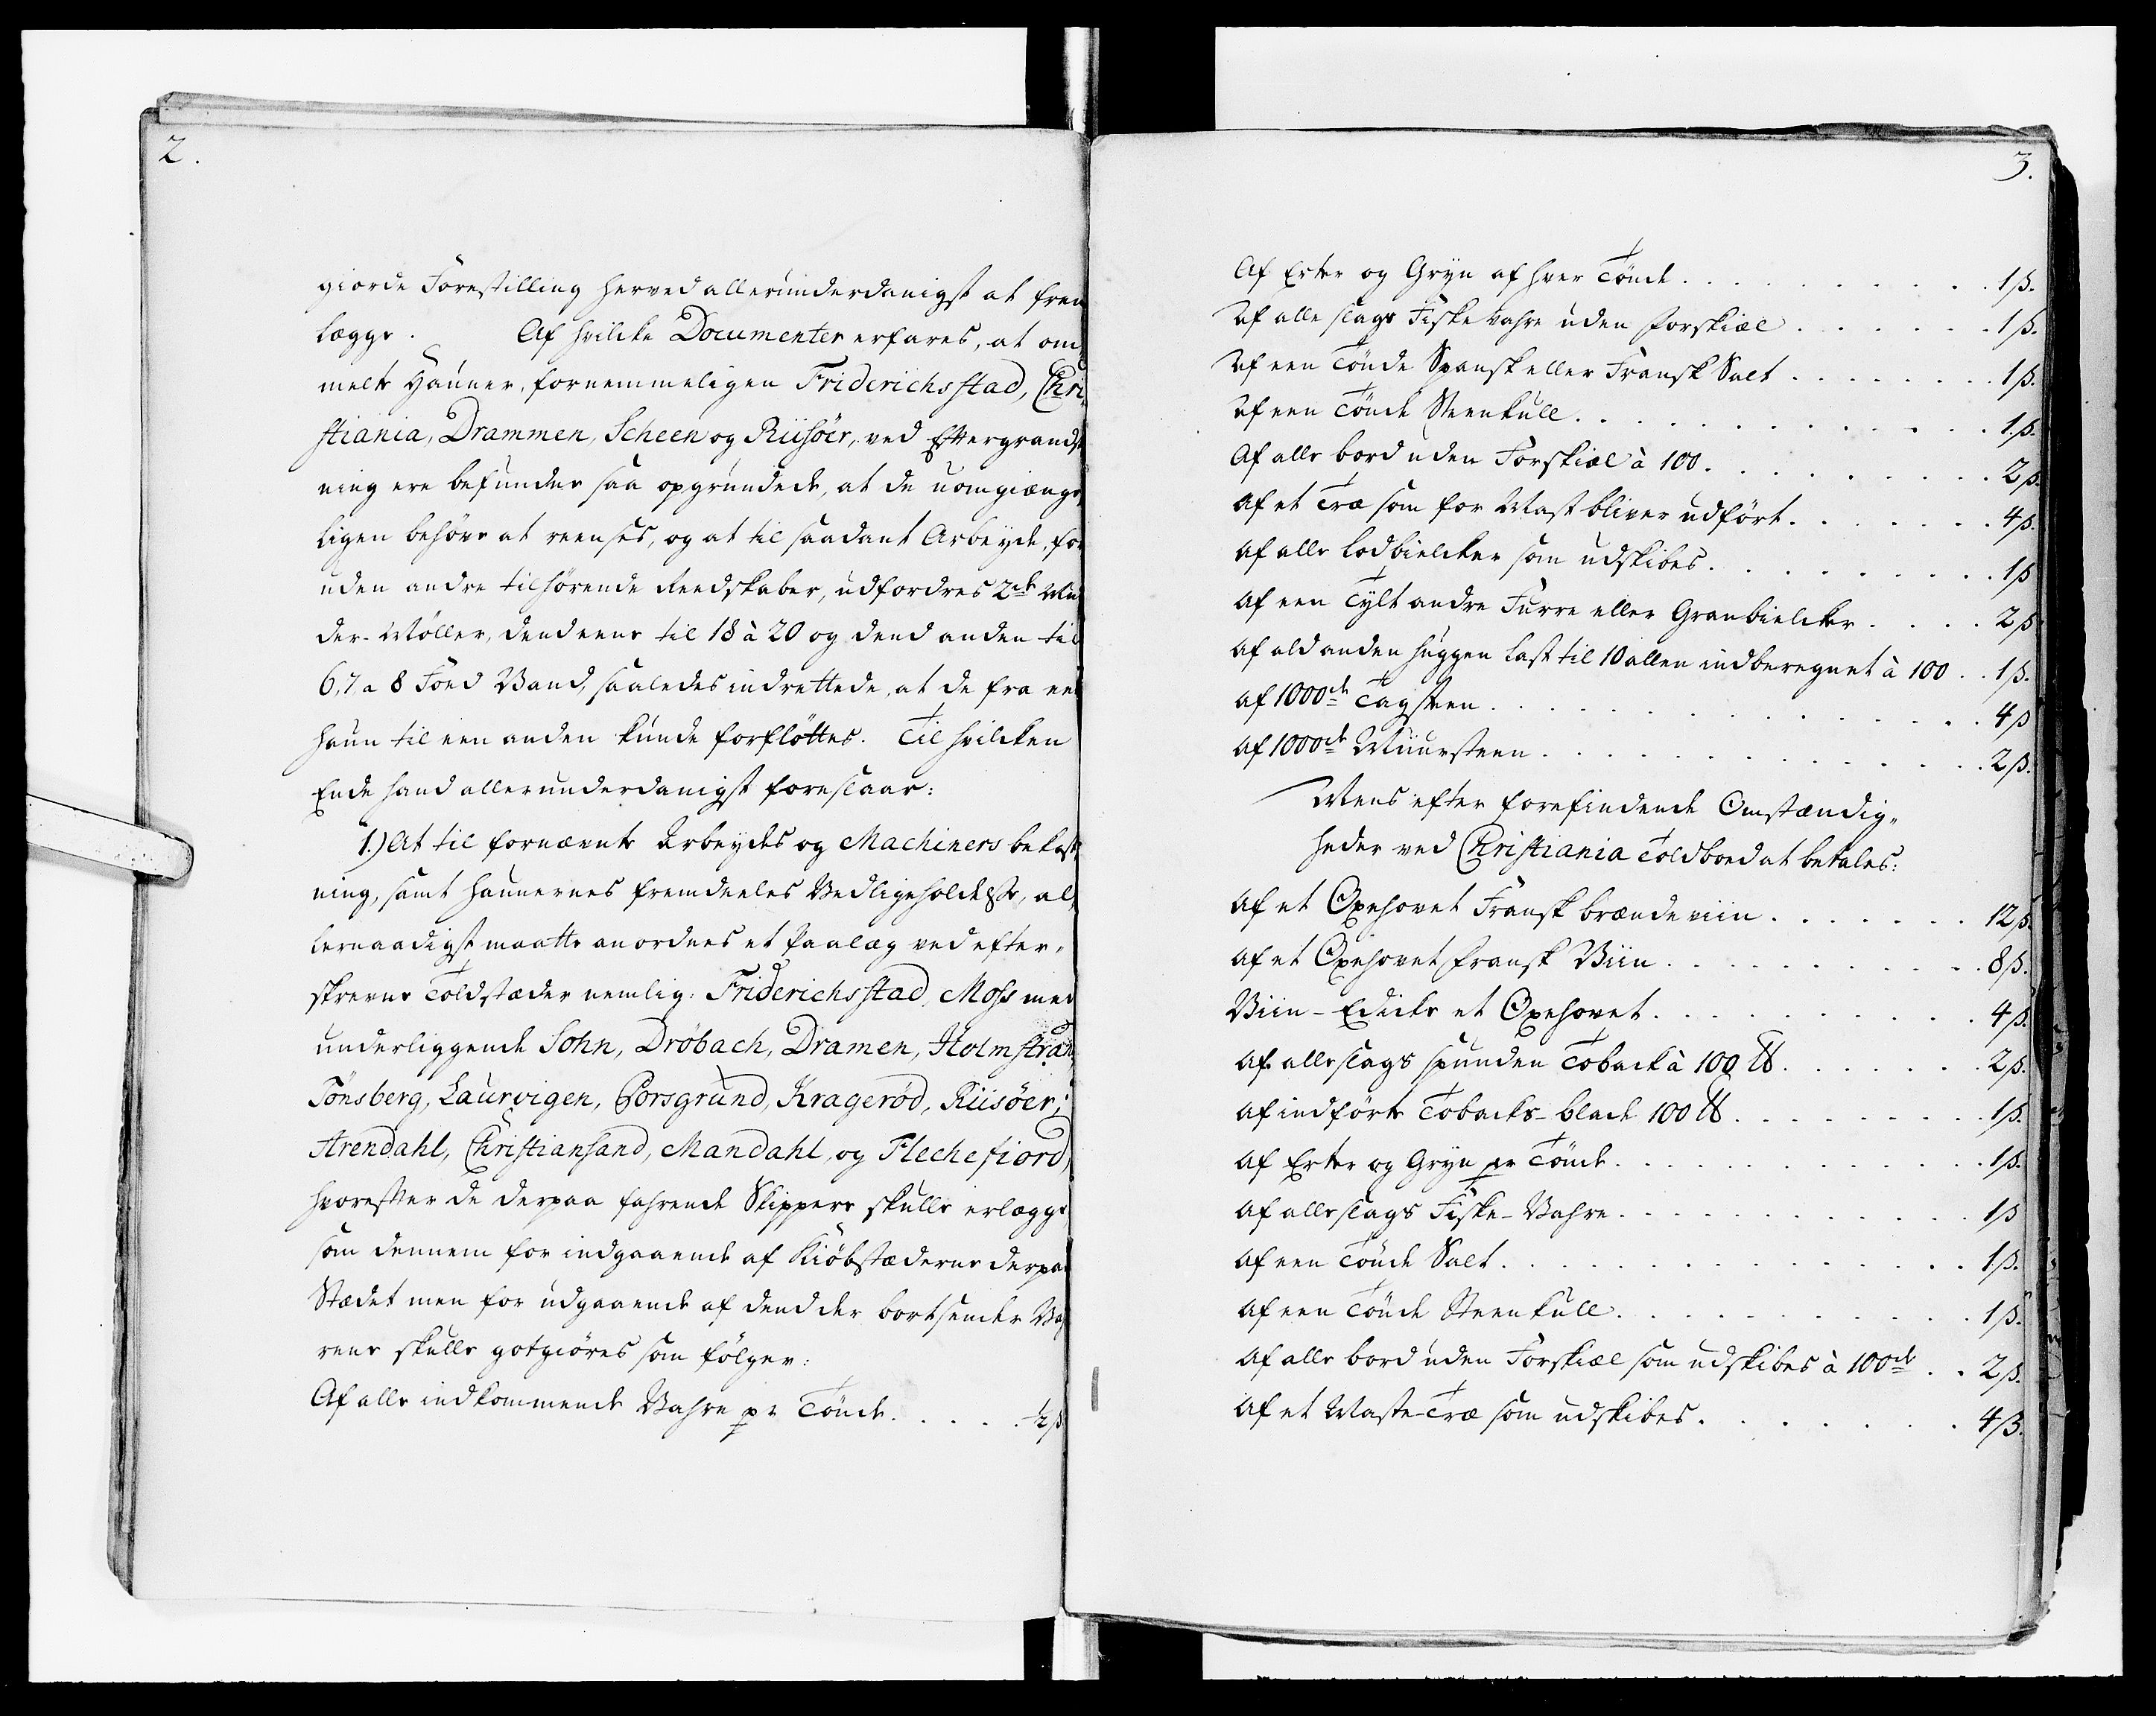 2.
giorde Forestilling herved allerunderdanigst at frem
lægge. Af hvilcke Documenter erfares, at om
melte Hauner, fornemmeligen Friderichsstad, Chri„
stiania, Drammen, Scheen og Riisöer, ved Eftergrandsk
ning ere befunden saa opgrundede, at de uomgiænge
ligen behöve at reenses, og at til saadant Arbeyde, for
uden andre tilhörende Reedskaber, udfordres 2de Mud
der-Möller, dend eene til 18 à 20 og dend anden til
6, 7 a 8 Foed Vand, saaledes indrettede, at de fra een
Haun til een anden kunde forflöttes. Til hvilcken
Ende hand allerunderdanigst foreslaar:
1.) At til fornævnte Arbeydes og Machiners bekost
ning, samt Haunernes fremdeeles Vedligeholdelse, al„
lernaadigst maatte anordnes et Paalæg ved efter„
skrevne Toldstæder nemlig: Friderichsstad, Moss med
underliggende Sohn, Dröbach, Dramen, Holmstrand
Tönsberg, Laurvigen, Porsgrund, Kragerød, Riisöer,
Arendahl, Christiansand, Mandahl, og Flechefiord,
hvorefter de derpaa fahrende Skippere skulle erlægge
som dennem for indgaaende af Kiöbstæderne derpaa
Stædet men for udgaaende af dend der bortsender Vah
rene skulle gotgiöres som fölger:
Af alle indkommende Vahre pr Tönde. . . . . ½ ß
3.
Af Erter og Gryn af hver Tönde. . . . . . . . . . 1 ß.
Af alle slags Fiske Vahre uden forskiæl . . . . . . 1 ß.
Af een Tönde Spansk eller Fransk Salt . . . . . . . 1 ß.
Af een Tönde Steenkull. . . . . . . . . . . . . . 1. ß.
Af alle bord uden Forskiæl à 100. . . . . . . . . 2 ß.
Af et Træ som for Mast bliver udfört. . . . . . . 4 ß.
Af alle lodbielcker som udskibes. . . . . . . . . . 1 ß
Af een Tylt andre Furre eller Granbielcker. . . . . 2 ß
Af ald anden huggen Last til 10 allen indberegnet à 100 . . 1 ß.
Af 1000de Tagsteen. . . . . . . . . . . . . . . . 4 ß
Af 1000de Muursteen. . . . . . . . . . . . . . . 2 ß.
Mens efter forefindende Omstændig„
heder ved Christiania Toldboed at betales:
Af et Oxehovet Fransk brændeviin. . . . . . . 12 ß.
Af et Oxehovet fransk Viin. . . . . . . . . . . 8 ß.
Viin-Edicke et Oxehovet. . . . . . . . . . . . 4 ß.
Af alle slags spunden Toback à 100 ℔. . . . . . . 2 ß.
Af indförte Tobacks-blade 100 ℔. . . . . . . . . 1 ß.
Af Erter og Gryn pr Tönde. . . . . . . . . . . . 1 ß.
Af alle slags Fiske-Vahre. . . . . . . . . . . . 1 ß
Af een Tönde Salt. . . . . . . . . . . . . . . . 1 ß.
Af een Tönde Steenkull. . . . . . . . . . . . . 1 ß.
Af alle bord uden Forskiæl som udskibes à 100de . . 2 ß.
Af et Maste-Træ som udskibes. . . . . . . . . 4 ß.